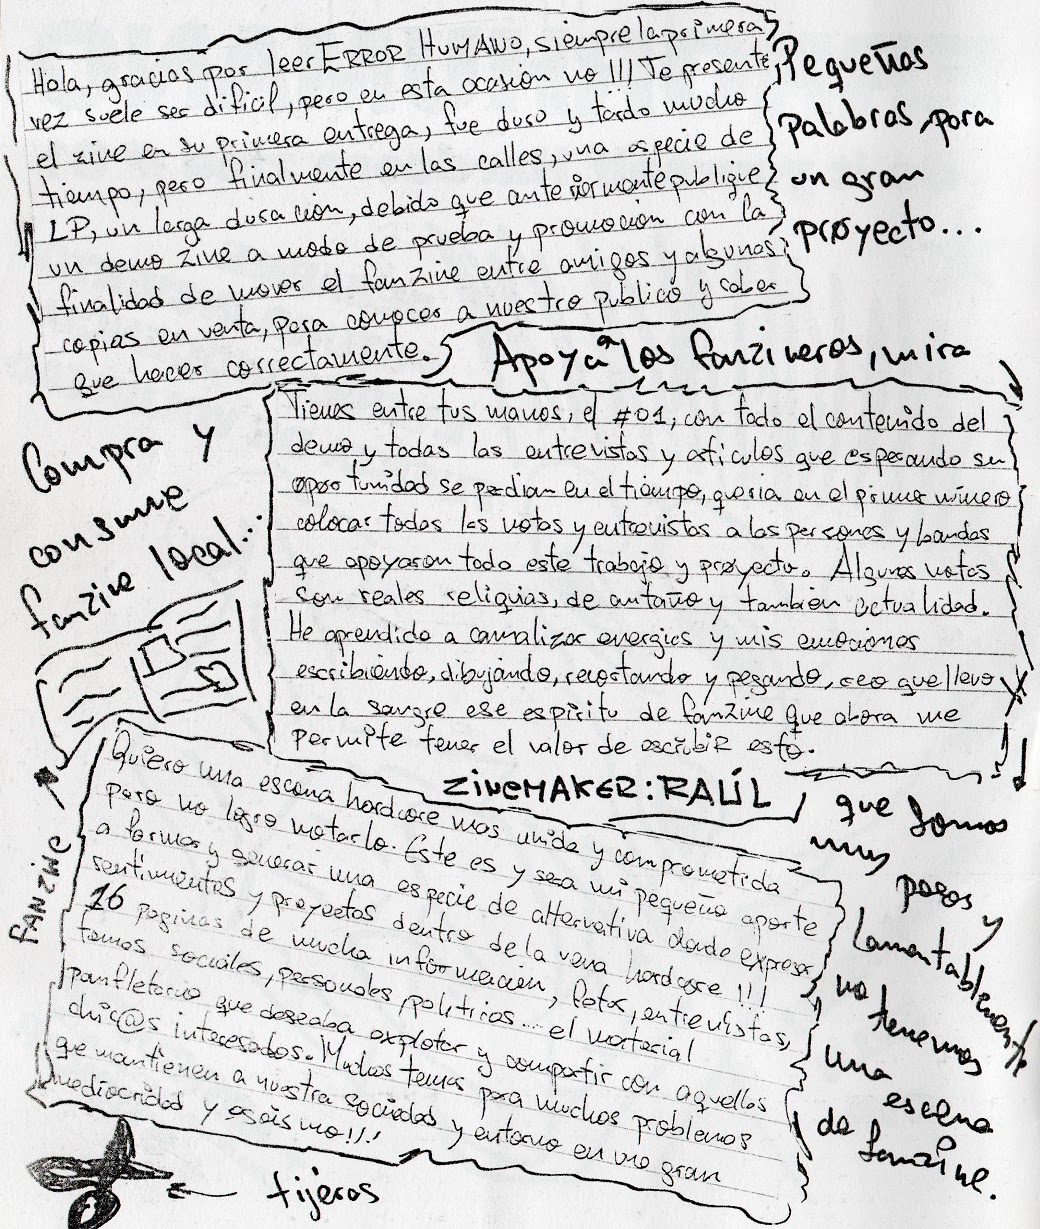 Hola, gracias por leer ERROR HUMANO, siempre la primera
vez suele ser dificil, pero en esta ocasión no!!! Te presente
el zine en su primera entrega, fue duro y tardo mucho
tiempo, pero finalmente en las calles, una especie de
LP, un larga duración, debido que anteriormente publique
un demo zine a modo de prueba y promoción con la
finalidad de mover el fanzine entre amigos y algunas
copias en venta, para conocer a nuestro publico y saber
que hacer correctamente.
Pequeñas
palabras, para
un gran
proyecto...
Apoya a los fanzineros, mira
Compra y
consume
fanzine local...
Tienes entre tus manos, el #01, con todo el contenido del
demo y todas las entrevistas y articulos que esperando su
oportunidad se perdian en el tiempo, queria en el primer número
colocar todas las notas y entrevistas a las personas y bandas
que apoyaron todo este trabajo y proyecto. Algunas notas
son reales reliquias, de antaño y tambien actualidad.
He aprendido a canalizar energias y mis emociones
escribiendo, dibujando, recortando y pegando, creo que llevo
en la sangre ese espiritu de fanzine que ahora me
permite tener el valor de escribir esto.
ZINEMAKER: RAÚL
FANZINE
Quiero una escena hardcore mas unida y comprometida
pero no logro notarlo. Este es y sera mi pequeño aporte
a formar y generar una especie de alternativa donde expresar
sentimientos y proyectos dentro de la vena hardcore!!!
16 paginas de mucha información, fotos, entrevistas,
temas sociales, personales, politicos... el material
panfletario que deseaba explotar y compartir con aquellos
chic@s interesados. Muchos temas para muchos problemas
que mantienen a nuestra sociedad y entorno en una gran
mediocridad y egoismo!!!
que somos
muy
pocos y
lamentablemente
no tenemos
una
escena
de fanzine.
tijeras